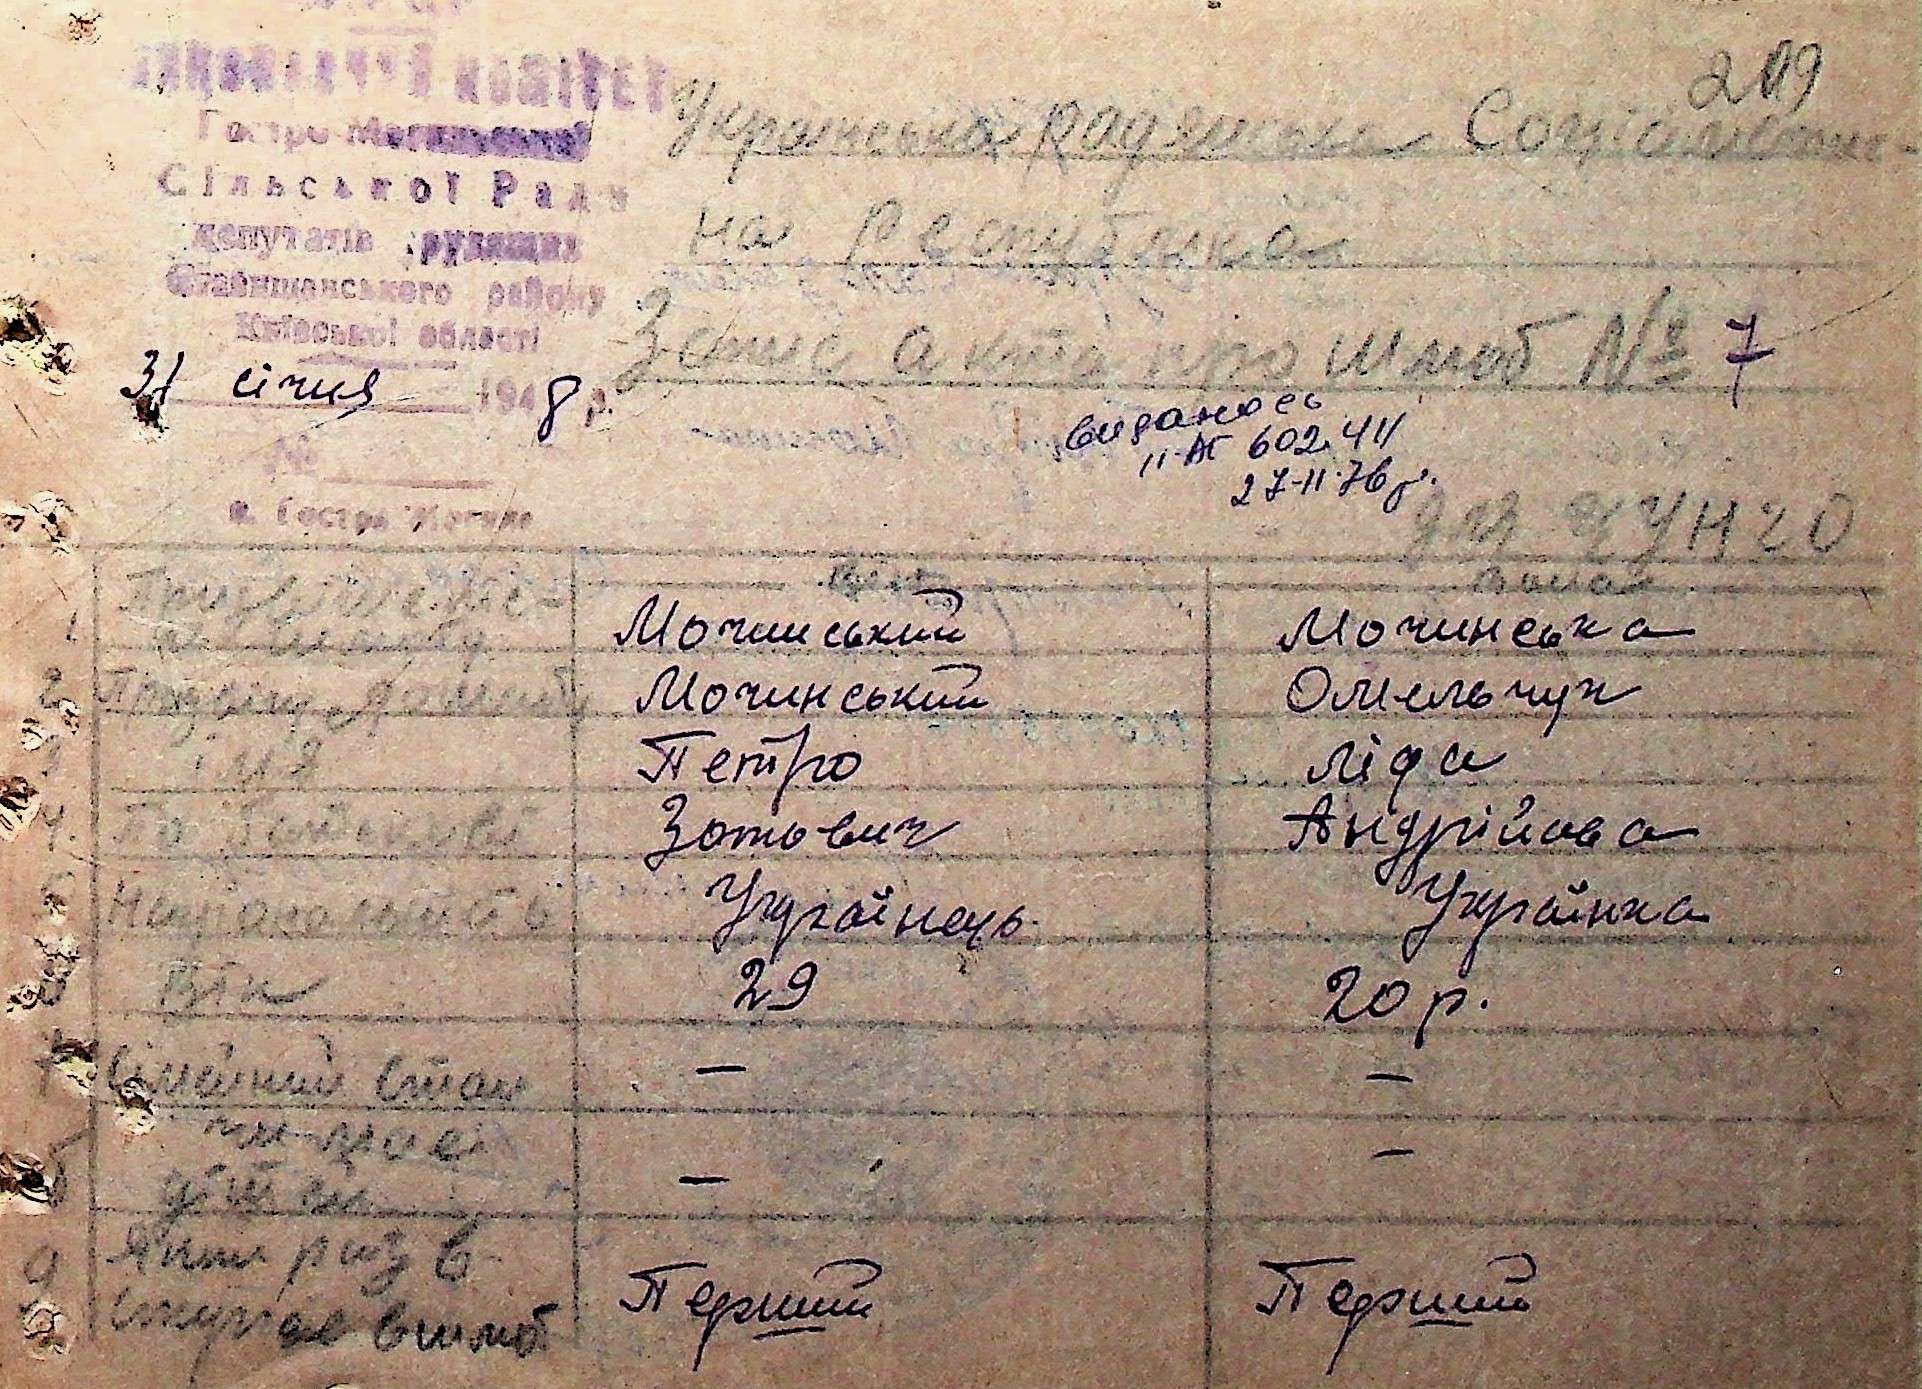 219
ВИКОНАВЧИЙ КОМІТЕТ
Гостро-Могильської
Сільської Ради
депутатів трудящих
Ставищанського району
Київської області
31 січня 1948 р.
№
с. Гостра Могила
Українська Радянська Соціалістич-
на Республіка
Запис акта про шлюб № 7
видано сь
II-АГ 602411
27-II-76 р.
1. Прізвище піс-
ля шлюбу Мочинський Мочинська
2. Прізвищ до шлюбу Мочинський Омельчук
3 ім'я Петро Ліда
4. По батькові Зотович Андріївва
5 Національність Українець Українка
6 Вік 29 20 р.
7 Сімейний стан — —
8 дітей — —
9 Який раз в-
ступає в шлюб Перший Перший